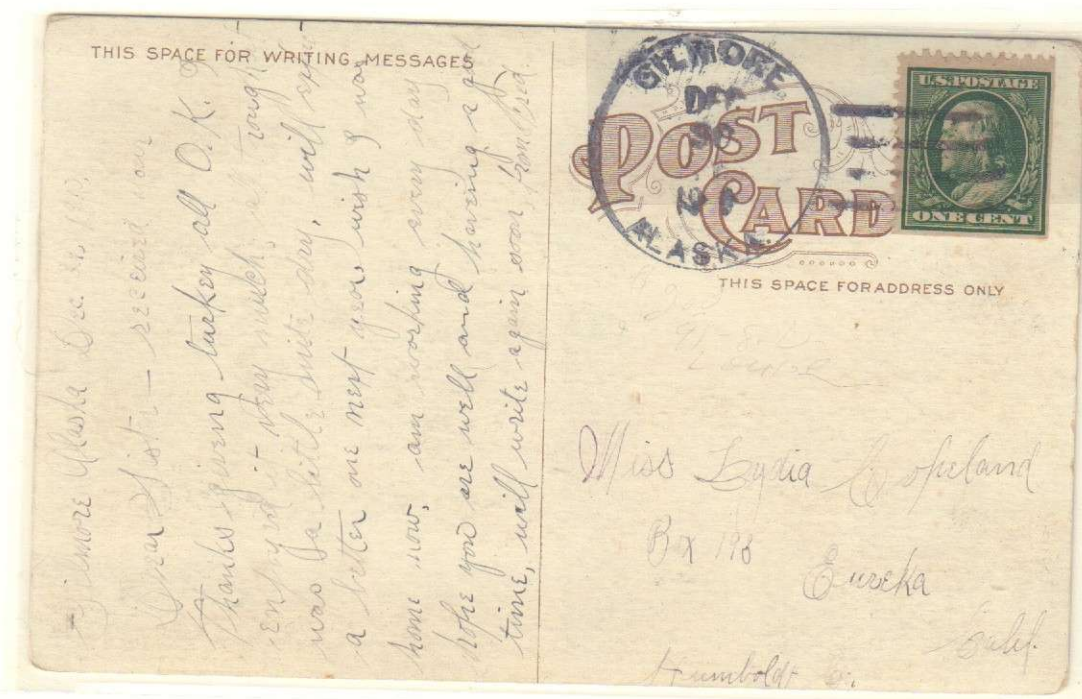 THIS SPACE FOR WRITING MESSAGES
Gilmore Alaska Dec.
Dear Sist — received your
Thanks giving turkey all O.K. &
enjoyed it very much, a tough
was a little mite dry, will exp
a better one next year wish I was
home now, am working every day
hope you are well and having a good
time, will write again soon, from Fred.
GILMORE
DEC
30
ALASKA
POST
CARD
U.S. POSTAGE
ONE CENT
THIS SPACE FOR ADDRESS ONLY
Miss Lydia Copeland
Box 198
Eureka
Calif.
Humboldt Co.